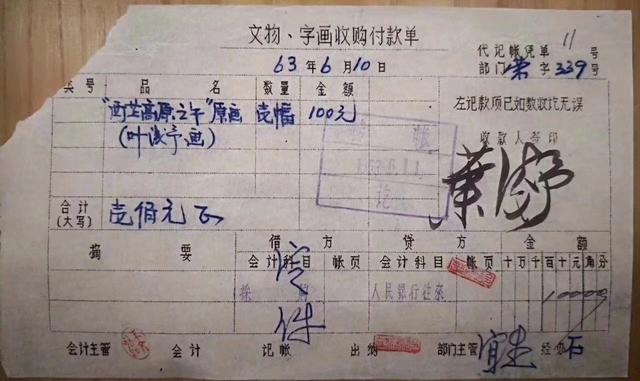 文物、字画收购付款单
代记帐凭单 11 号
63年6月10日
部门 荣 字 339 号
类号 品 名 数量 金额
左记款项已如数收讫无误
"西芒高原之午"原画 壹幅 100元
(叶浅予画)
收款人签印
叶浅予
讫
合计
(大写) 壹佰元正
摘 要 借方 贷方 金额
会计科目 帐页 会计科目 帐页 十万千百十元角分
采购 人民银行往来 10000
会计主管 会计 记帐 出纳 部门主管 经办